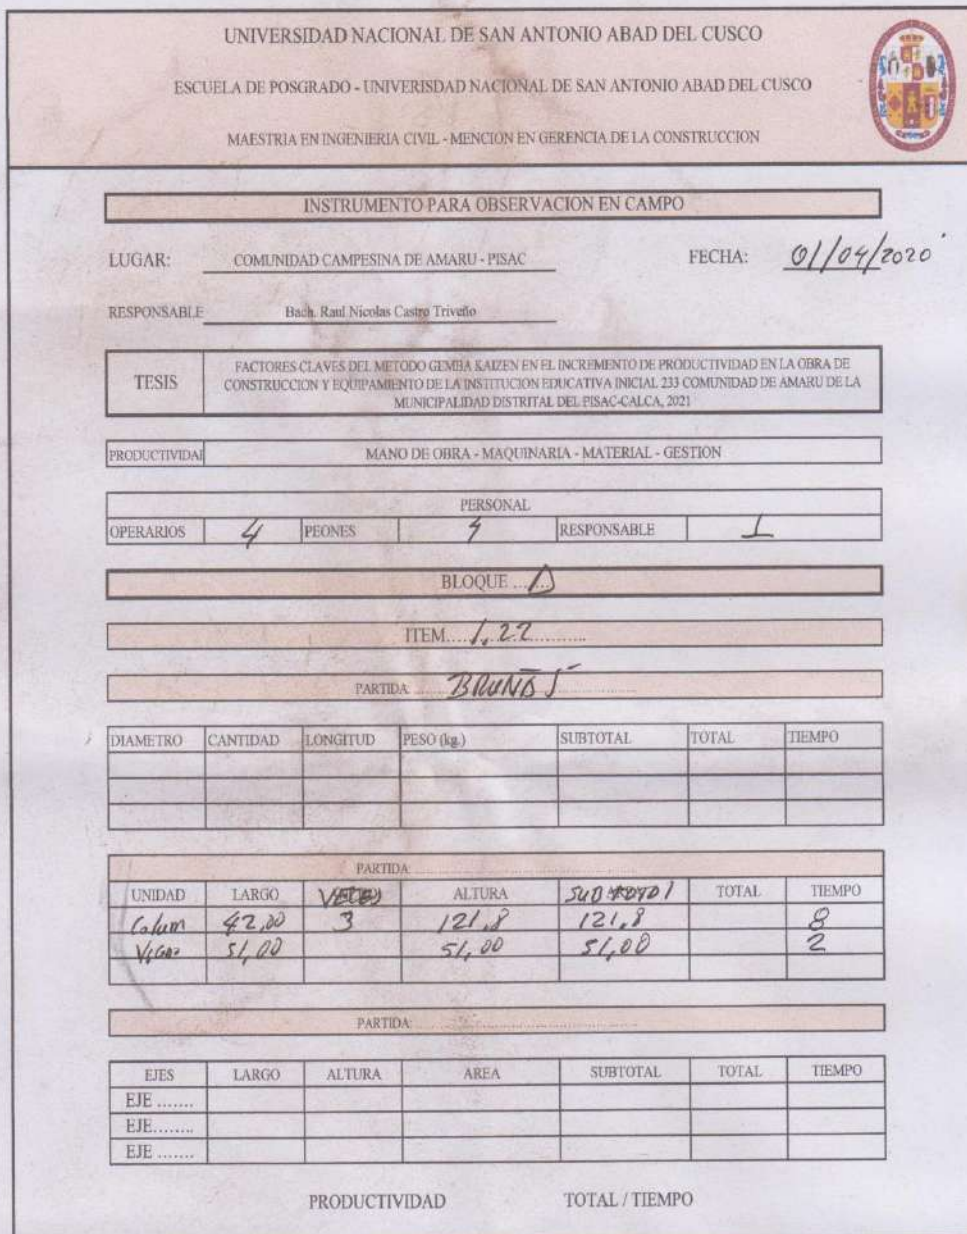 UNIVERSIDAD NACIONAL DE SAN ANTONIO ABAD DEL CUSCO
ESCUELA DE POSGRADO - UNIVERISDAD NACIONAL DE SAN ANTONIO ABAD DEL CUSCO
MAESTRIA EN INGENIERIA CIVIL - MENCION EN GERENCIA DE LA CONSTRUCCION
INSTRUMENTO PARA OBSERVACION EN CAMPO
LUGAR: COMUNIDAD CAMPESINA DE AMARU - PISAC FECHA: 01/04/2020
RESPONSABLE Bach. Raul Nicolas Castro Triveño
TESIS
FACTORES CLAVES DEL METODO GEMBA KAIZEN EN EL INCREMENTO DE PRODUCTIVIDAD EN LA OBRA DE
CONSTRUCCION Y EQUIPAMIENTO DE LA INSTITUCION EDUCATIVA INICIAL 233 COMUNIDAD DE AMARU DE LA
MUNICIPALIDAD DISTRITAL DEL PISAC-CALCA, 2021
PRODUCTIVIDAD MANO DE OBRA - MAQUINARIA - MATERIAL - GESTION
PERSONAL
OPERARIOS 4 PEONES RESPONSABLE 1
BLOQUE ....... D
ITEM.....1,22...........
PARTIDA: BRUÑAS
DIAMETRO CANTIDAD LONGITUD PESO (kg.) SUBTOTAL TOTAL TIEMPO
PARTIDA:
UNIDAD LARGO VECES ALTURA SUBTOTAL TOTAL TIEMPO
Colum 42,00 3 121,8 121,8 8
Vigas 51,00 51,00 51,00 2
PARTIDA:
EJES LARGO ALTURA AREA SUBTOTAL TOTAL TIEMPO
EJE .......
EJE.......
EJE .......
PRODUCTIVIDAD TOTAL / TIEMPO